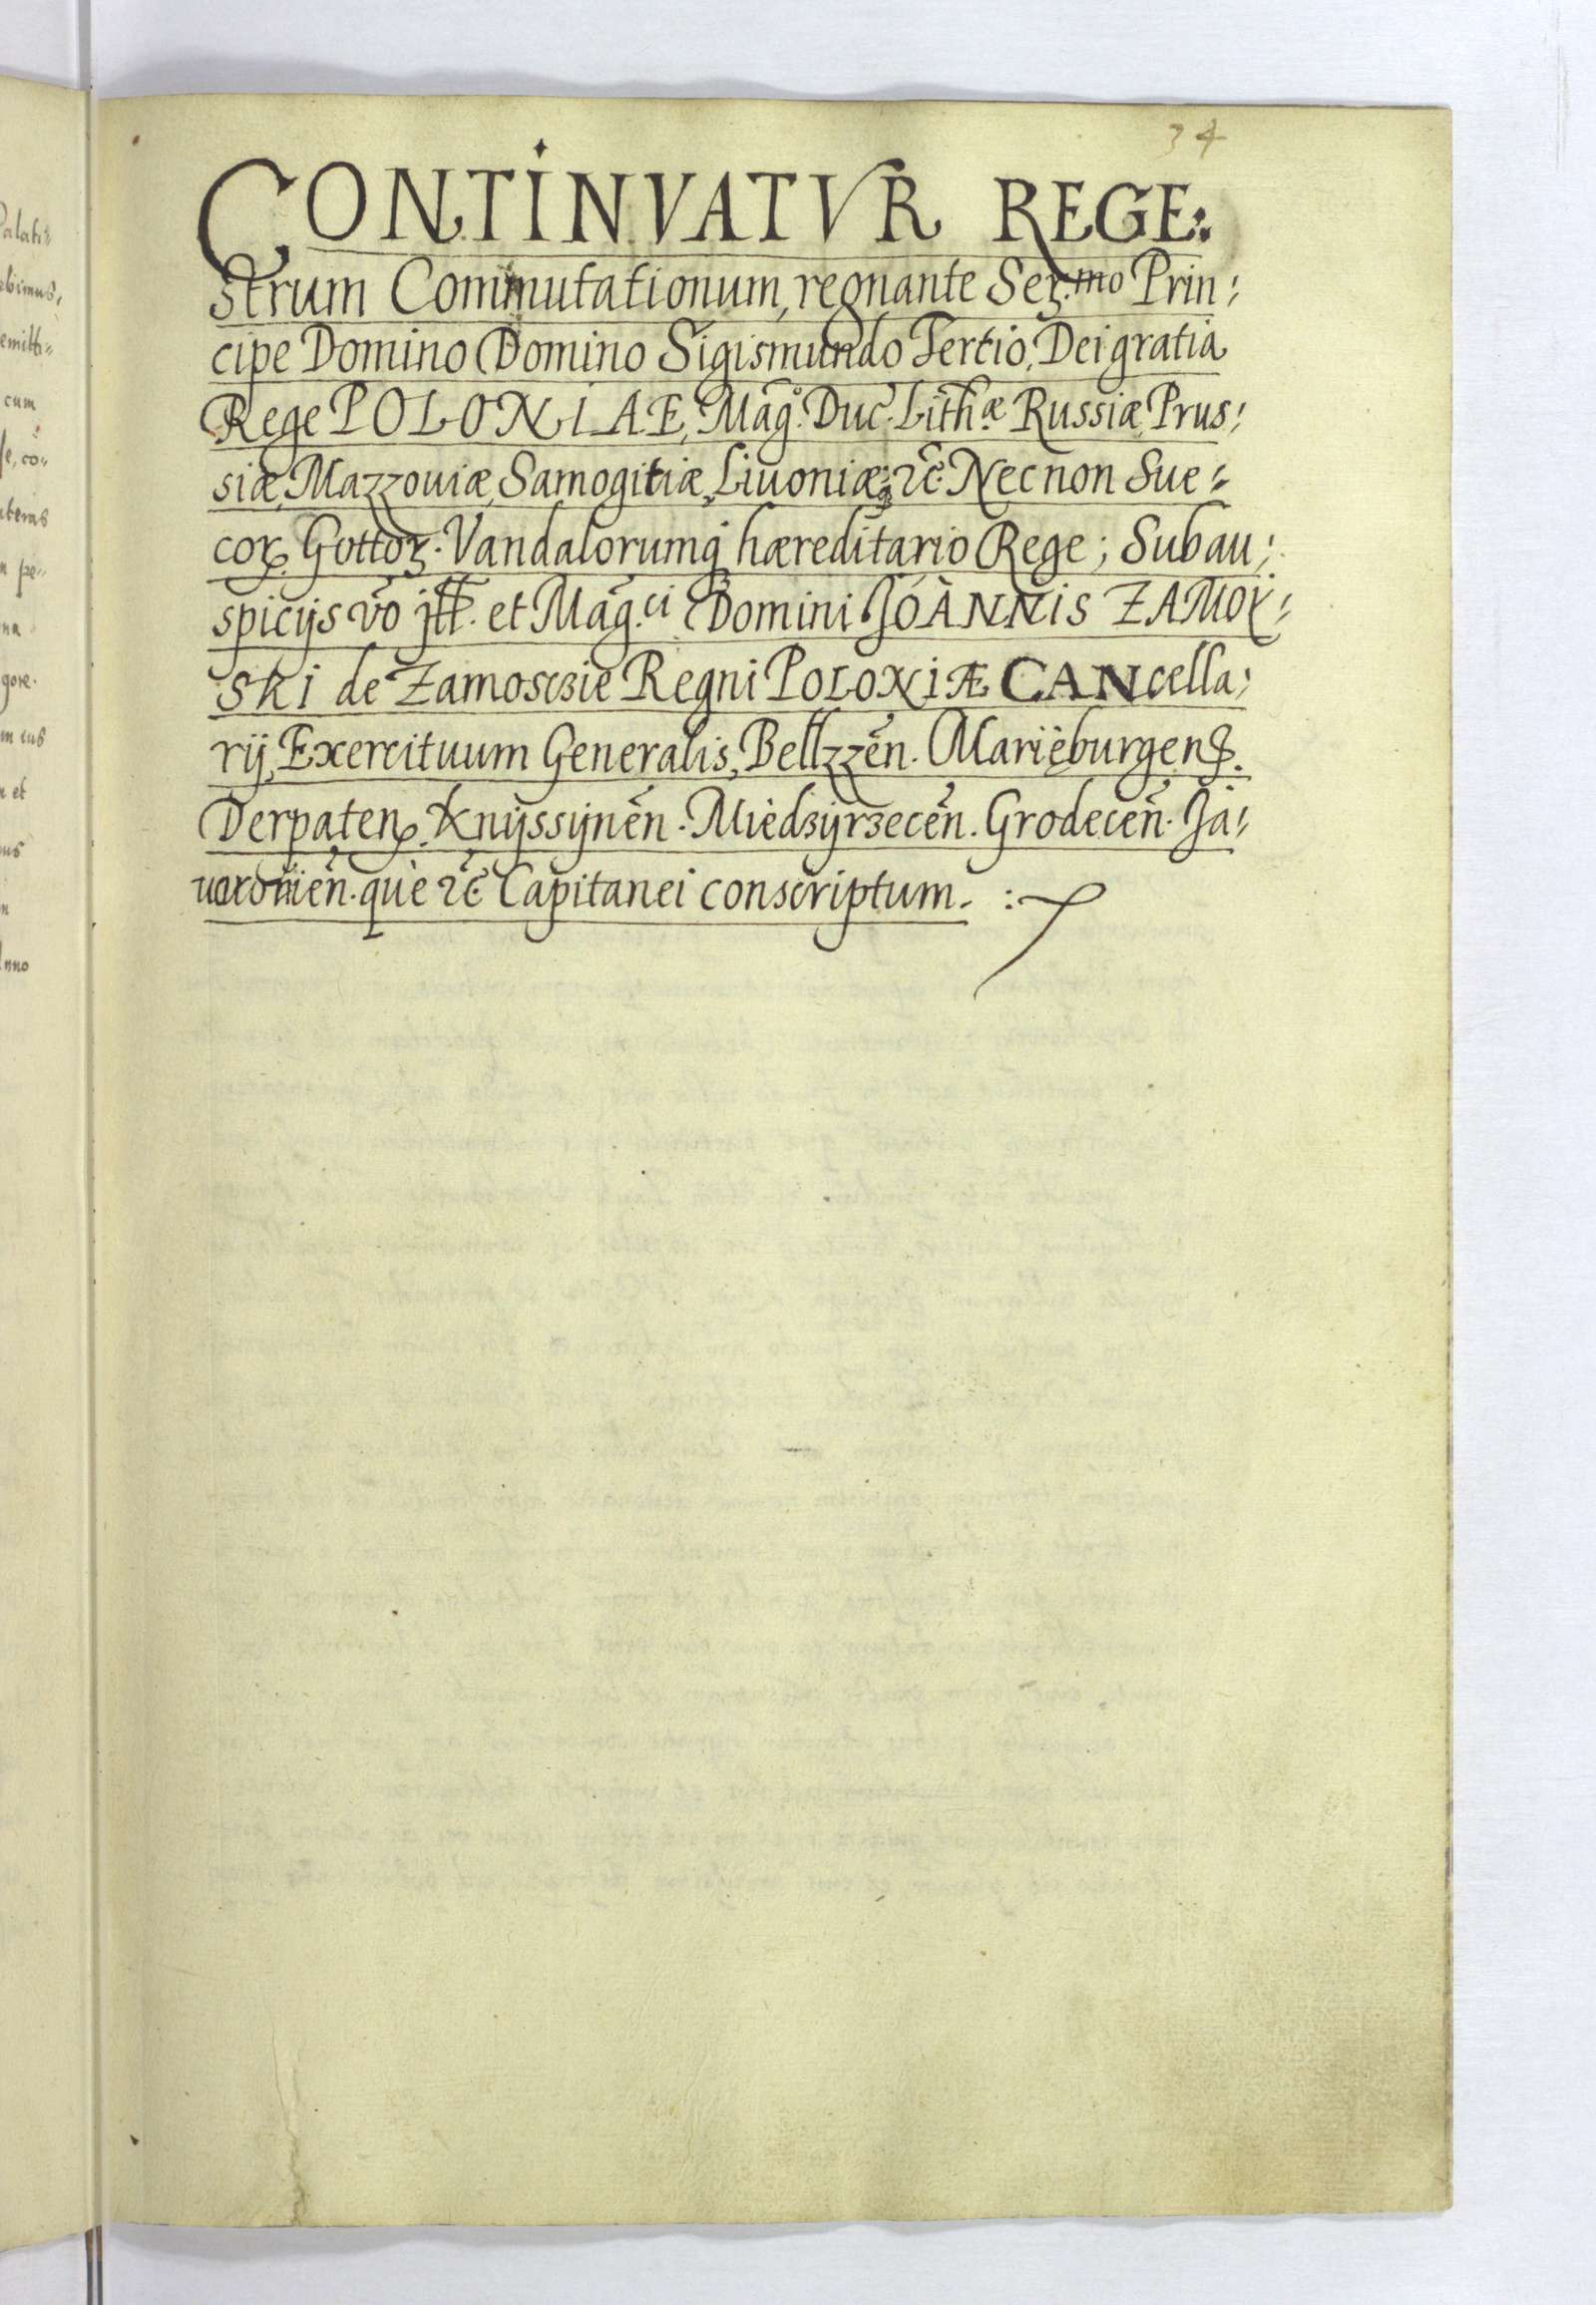 34
CONTINVATVR REGE:
strum Commutationum, regnante Ser.mo Prin:
cipe Domino Domino Sigismundo Tertio, Dei gratia
Rege POLONIAE, Mag.° Duc. Lith.æ Russiæ, Prus:
siæ, Mazzouiæ, Samogitiæ, Liuoniæq; ꝛc̃. Necnon Sue:
corꝝ Gottoꝝ. Vandalorumq̃ hæreditario Rege; Sub au:
spicijs vo Jll. et Mag.ci Domini JOANNIS ZAMOY:
SKI de Zamosczie Regni POLONIÆ CANcella:
rij, Exercituum Generalis, Bellzzen̄. Marięburgen̄.
Derpaten̄. Knyssynen̄. Miedzyrzecen̄. Grodecen̄. Ja:
uoronien̄. que ꝛc̃. Capitanei conscriptum. :
cum
gore.
et